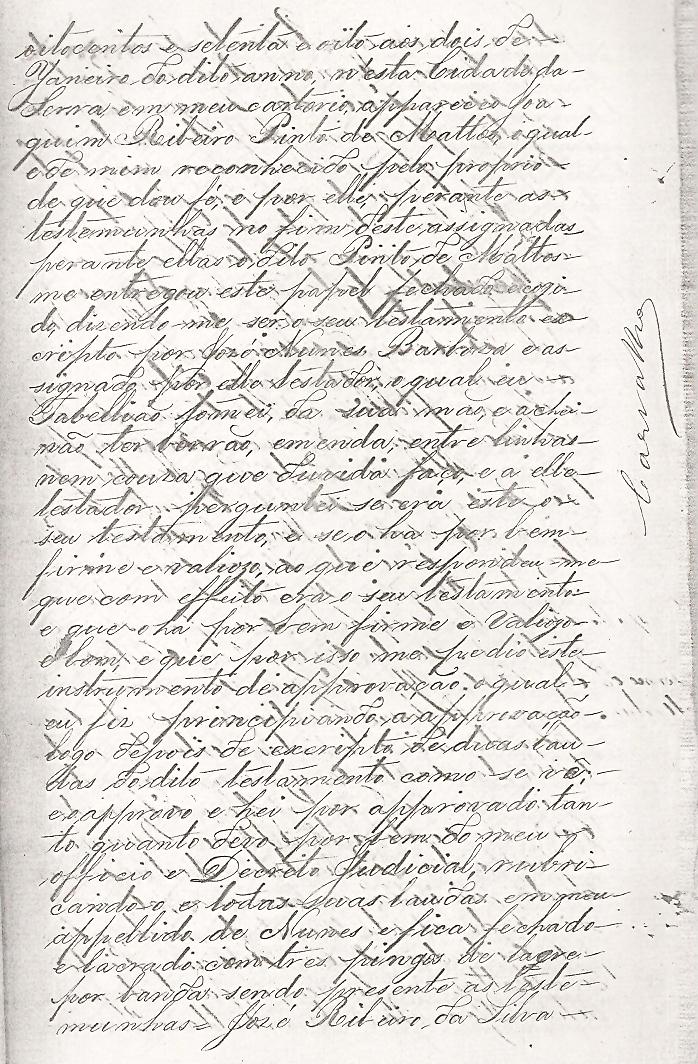 oitocentos e setenta e oito, aos dois de
Janeiro do dito anno, n'esta Cidade da
Serra, em meu cartorio, appareceo Joa-
quim Ribeiro Pinto de Mattos, o qual
e de mim reconhecido pelo proprio
de que dou fé, e por elle perante as
testemunhas no fim deste assignadas
perante ellas o dito Pinto de Mattos
me entregou este papel fechado e cozi-
do, dizendo-me ser o seu testamento es-
cripto por José Nunes Barboza e as-
signado por elle testador, o qual eu
Tabellião tomei, da sua mão, e achei
não ter borrão, emenda, entre linhas
nem couza que duvida faça, e a elle
testador perguntei se era este o
seu testamento, e se o ha por bem
firme e valiozo, ao que respondeu-me
que com effeito era o seu testamento
e que o ha por bem firme e valiozo
e bom, e que por isso me pedio este
instrumento de approvação, o qual
eu fiz principiando a approvação
logo depois de escripto de duas lau-
das do dito testamento como se vê,
e o approvo e hei por approvado tan-
to quanto devo por bem do meu
officio e Decreto Judicial, rubri-
cando o e todas suas laudas em meu
appellido de Nunes e fica fechado
e lacrado com três pingos de lacre
por banda sendo presente as teste-
munhas = José Ribeiro da Silva
Carvalho